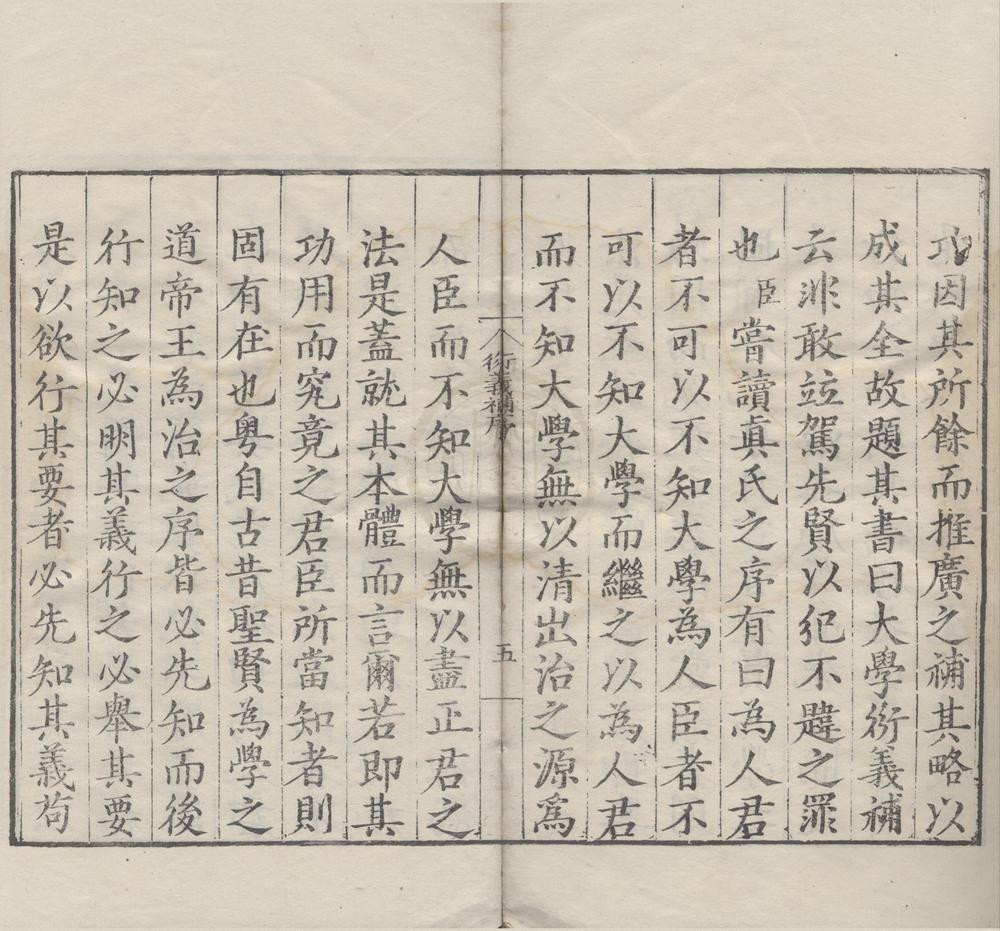 功因其所餘而推廣之補其略以
成其全故題其書曰大學衍義補
云非敢竝駕先賢以犯不韙之罪
也臣嘗讀真氏之序有曰為人君
者不可以不知大學為人臣者不
可以不知大學而繼之以為人君
而不知大學無以清出治之源為
衍義補序
五
人臣而不知大學無以盡正君之
法是蓋就其本體而言爾若即其
功用而究竟之君臣所當知者則
固有在也粵自古昔聖賢為學之
道帝王為治之序皆必先知而後
行知之必明其義行之必舉其要
是以欲行其要者必先知其義茍